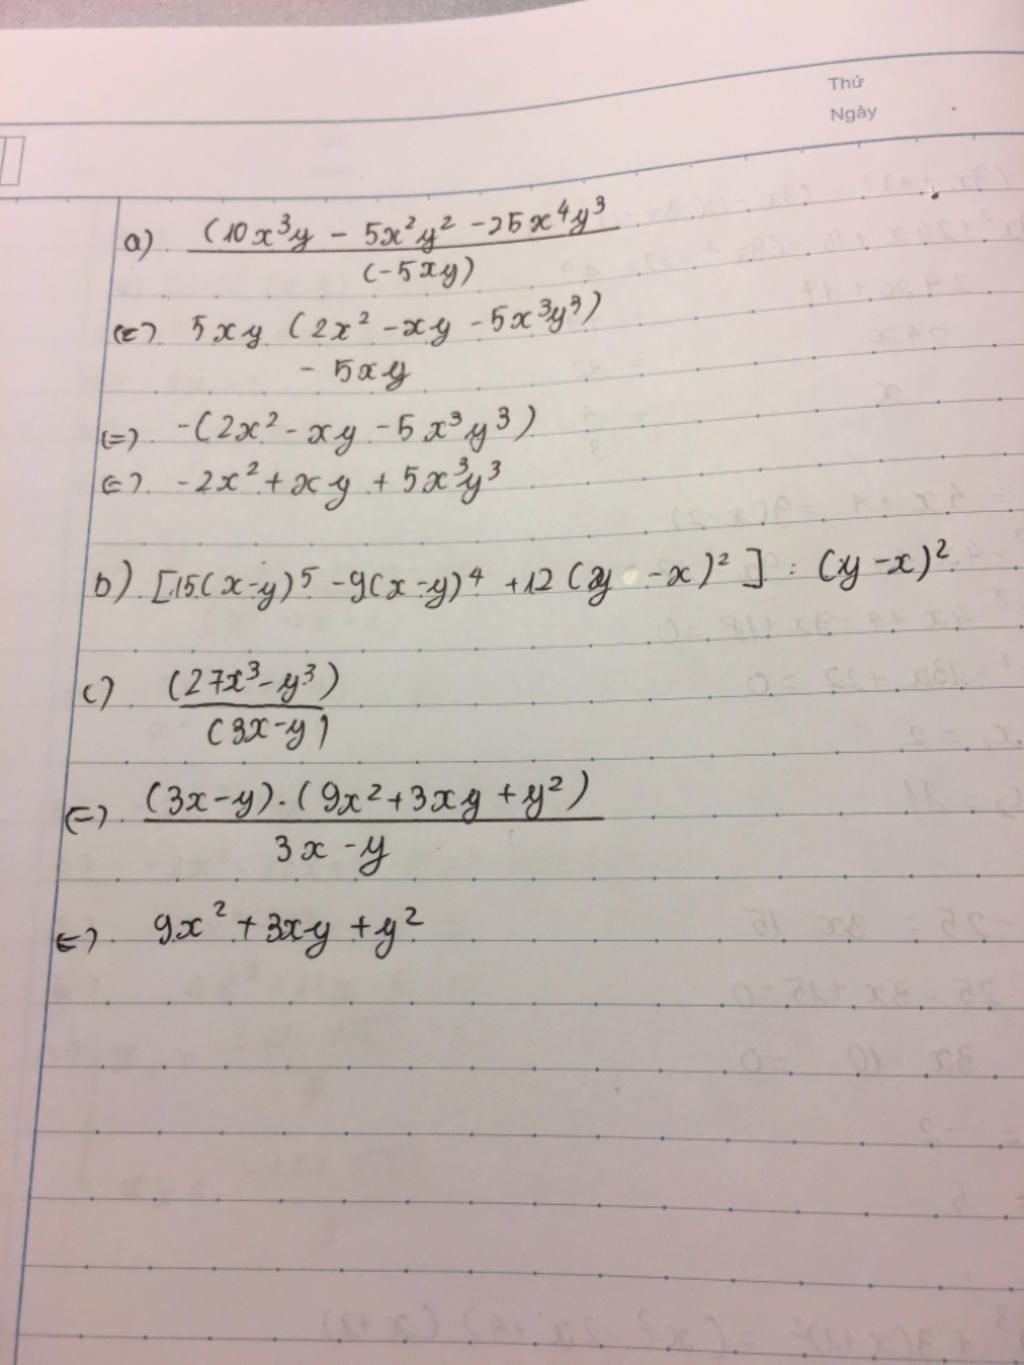 Thứ
Ngày
a) (10x³y - 5x²y² - 25x⁴y³
(-5xy)
(=) 5xy (2x² - xy - 5x³y³)
- 5xy
(=) -(2x² - xy - 5x³y³)
(=) -2x² + xy + 5x³y³
b) [15(x-y)⁵ - 9(x-y)⁴ + 12(y - x)²] : (y - x)²
c) (27x³ - y³)
(3x - y)
(=) (3x - y).(9x² + 3xy + y²)
3x - y
(=) 9x² + 3xy + y²